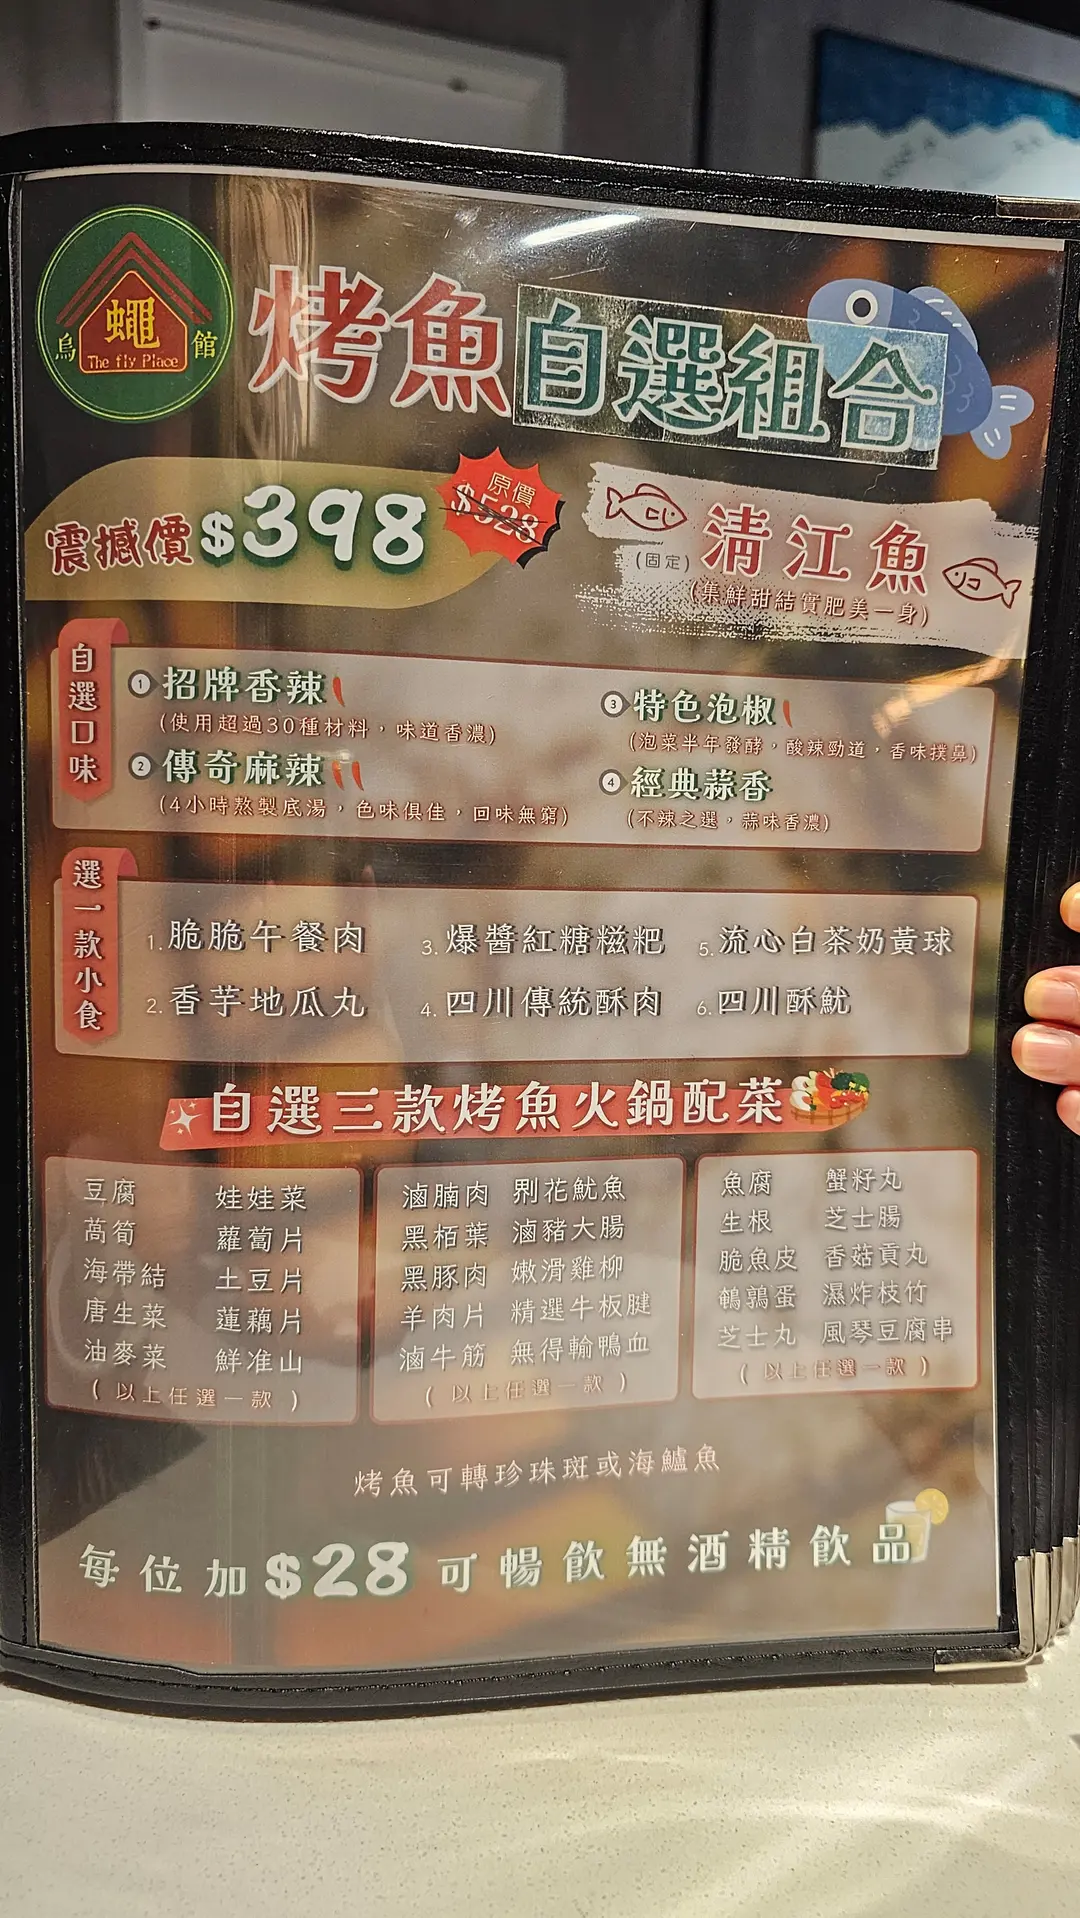 烏蠅館
The fly Place
烤魚自選組合
震撼價$398
原價
$528
(固定)清江魚
(集鮮甜結實肥美一身)
自選口味
1 招牌香辣
(使用超過30種材料，味道香濃)
2 傳奇麻辣
(4小時熬製底湯，色味俱佳，回味無窮)
3 特色泡椒
(泡菜半年發酵，酸辣勁道，香味撲鼻)
4 經典蒜香
(不辣之選，蒜味香濃)
選一款小食
1.脆脆午餐肉
2.香芋地瓜丸
3.爆醬紅糖糍粑
4.四川傳統酥肉
5.流心白茶奶黃球
6.四川酥魷
自選三款烤魚火鍋配菜
豆腐 娃娃菜
萵筍 蘿蔔片
海帶結 土豆片
唐生菜 蓮藕片
油麥菜 鮮准山
(以上任選一款)
滷腩肉 剠花魷魚
黑栢葉 滷豬大腸
黑豚肉 嫩滑雞柳
羊肉片 精選牛板腱
滷牛筋 無得輸鴨血
(以上任選一款)
魚腐 蟹籽丸
生根 芝士腸
脆魚皮 香菇貢丸
鵪鶉蛋 濕炸枝竹
芝士丸 風琴豆腐串
(以上任選一款)
烤魚可轉珍珠斑或海鱸魚
每位加$28可暢飲無酒精飲品